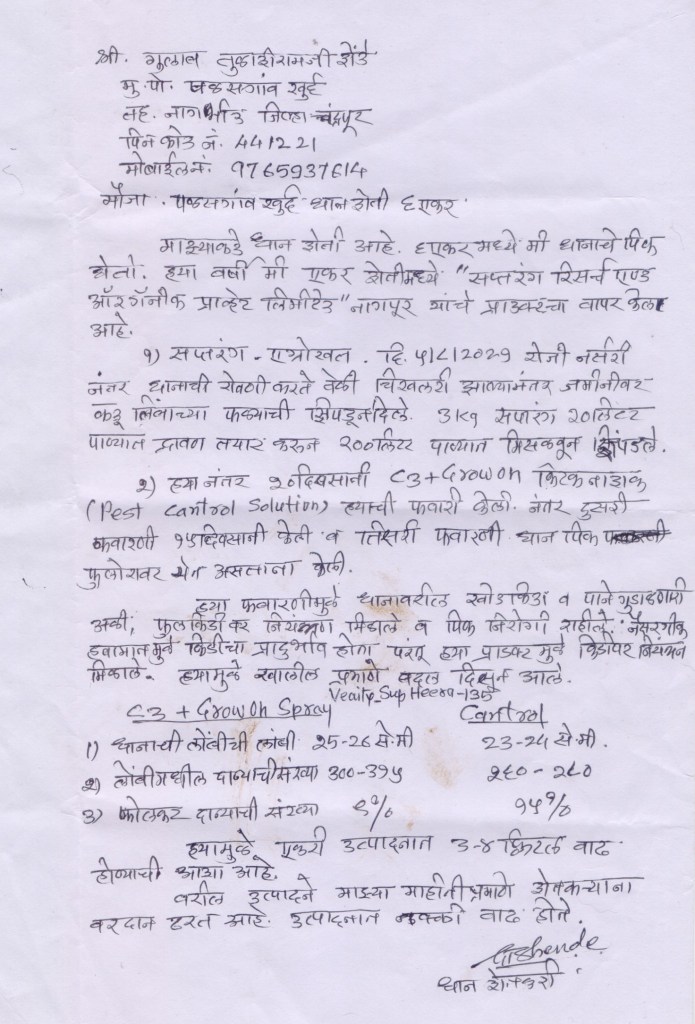 श्री. गुलाब तुळाशीरामजी शेंडे
मु. पो. पळसगांव खुर्द
तह. नागभीड जिल्हा चंद्रपूर
पिन कोड नं. 441221
मोबाईल नं. 9765937614
मौजा. पळसगांव खुर्द धान शेती ६ एकर
माझ्याकडे धान शेती आहे. ६ एकर मध्ये मी धानाचे पिक
घेतो. ह्या वर्षी मी एकर शेतीमध्ये "सप्तरंग रिसर्च एण्ड
ऑरगॅनीक प्राव्हेट लिमीटेड" नागपूर यांचे प्राडक्टचा वापर केला
आहे.
१) सप्तरंग - एग्रोखत. दि. ५/८/2029 रोजी नर्सरी
नंतर धानाची रोवणी करते वेळी चिखलटी झाल्यानंतर जमीनीवर
कडू लिंबाच्या फळ्याची शिंपडून दिले. 3 kg सपारंग २० लिटर
पाण्यात द्रावण तयार करुन २०० लिटर पाण्यात मिसळवून शिंपडले.
२) ह्या नंतर २० दिवसानी C3+Grow on किटकनाशक
(Pest Cantrol Solution) ह्याची फवारी केली. नंतर दुसरी
फवारणी १५ दिवसानी केली व तिसरी फवारणी धान पिक
फुलोरावर येत असताना केली.
ह्या फवारणीमुळे धानावरील खोडकिडा व पाने गुंडाळणारी
अळी, फुलकिडी वर नियंत्रण मिळाले व पिक निरोगी राहीले. नैसरगीक
हवामानामुळे किडीचा प्रादुर्भाव होता परंतू ह्या प्राडक्ट मुळे किडीवर नियंत्रण
मिळाले. ह्यामुळे खालील प्रमाणे बदल दिसुन आले.
Sup Heera-135
C3 + Grow on Spray Cantrol
1) धानाची लोंबीची लांबी 25-26 से.मी 23-24 से.मी.
2) लोंबीमधील दाण्याची संख्या 300-३१५ २६०-२८०
3) फोलकर दाण्याची संख्या ९% १५%
ह्यामुळे एकरी उत्पादनात 3-४ क्विंटल वाढ
होण्याची आशा आहे.
वरील उत्पादने माझ्या माहीती प्रमाणे शेतकऱ्याना
वरदान ठरत आहे. उत्पादनात नक्की वाढ होते.
धान शेतकरी